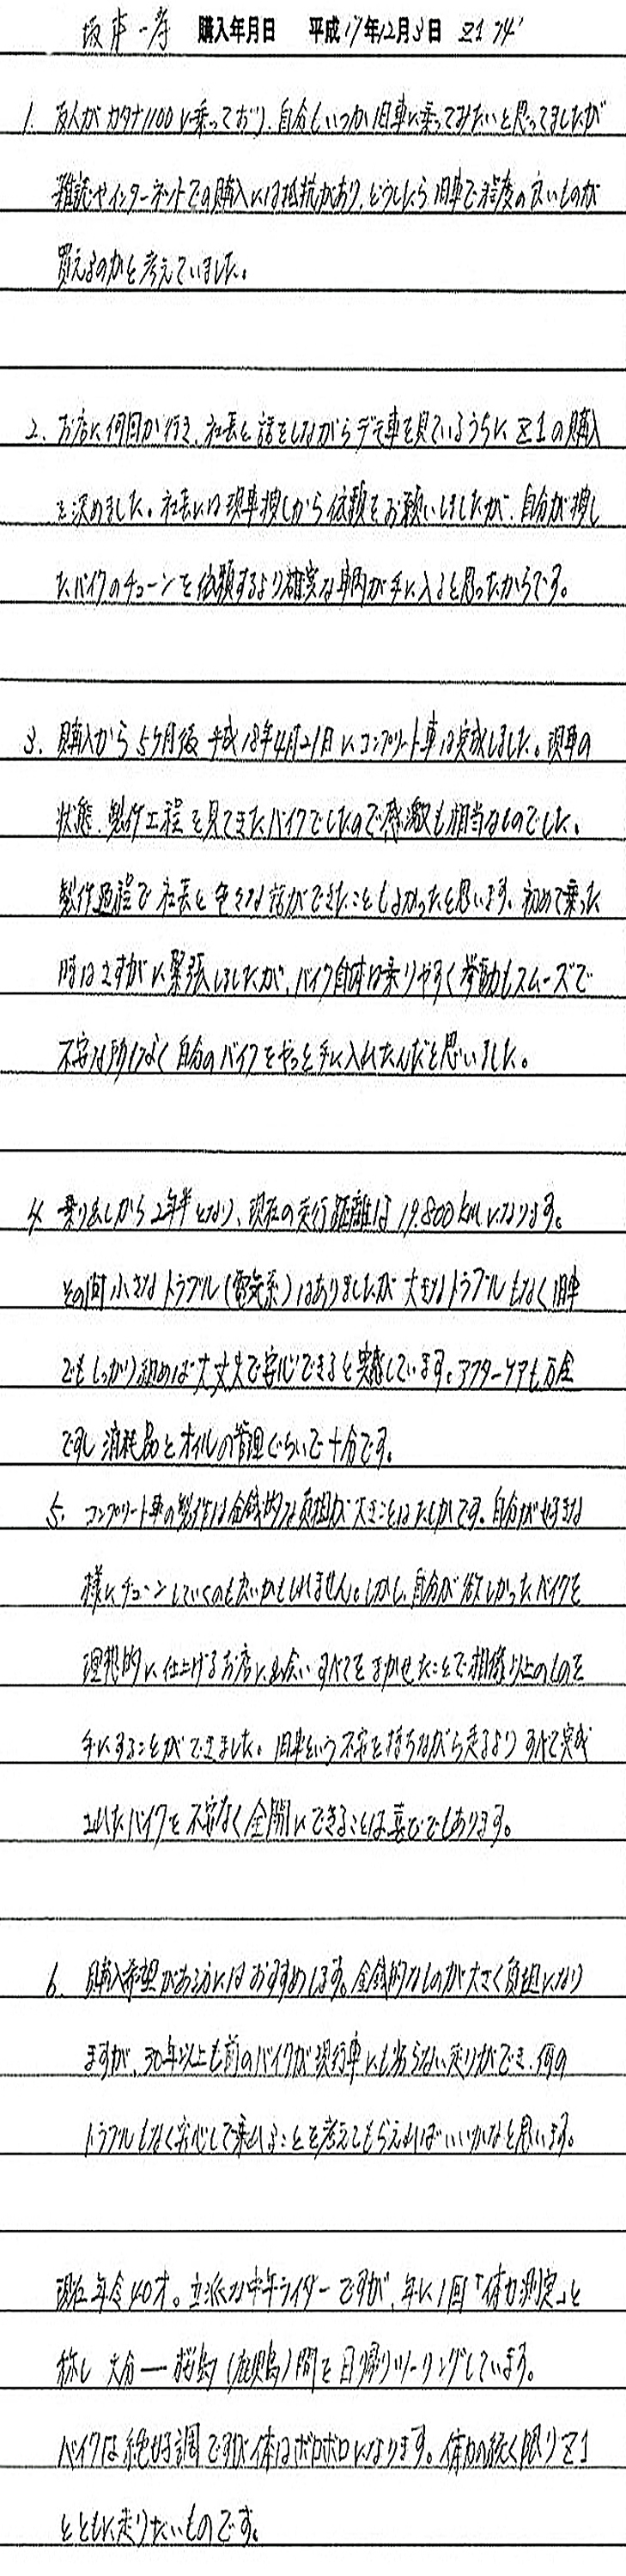 坂本一孝 購入年月日 平成17年12月3日 Z1 74'
1. 友人がカタナ1100に乗っており、自分もいつか旧車に乗ってみたいと思ってましたが
雑誌やインターネットでの購入には抵抗があり、どうしたら旧車で程度の良いものが
買えるのかと考えていました。
2. お店に何回か行き、社長と話をしながらデモ車を見ているうちにZ1の購入
を決めました。社長には現車捜しから依頼をお願いしましたが、自分が捜し
たバイクのチューンを依頼するより確実な車両が手に入ると思ったからです。
3. 購入から5ヶ月後 平成18年4月21日にコンプリート車は完成しました。現車の
状態、製作工程を見てきたバイクでしたので感激も相当なものでした。
製作過程で社長と色々な話ができたこともよかったと思います。初めて乗った
時はさすがに緊張しましたが、バイク自体は乗りやすく挙動もスムーズで
不安な所もなく自分のバイクをやっと手に入れたんだと思いました。
4 乗り出しから2年半となり、現在の走行距離は19.800kmになります。
その間小さなトラブル(電気系)はありましたが大きなトラブルもなく旧車
でもしっかり組めば大丈夫で安心できると実感しています。アフターケアも万全
ですし消耗品とオイルの管理ぐらいで十分です。
5. コンプリート車の製作は金銭的な負担が大きことはたしかです。自分が好きな
様にチューンしていくのも良いかもしれません。しかし、自分が欲しかったバイクを
理想的に仕上げるお店に出会いすべてをまかせたことで想像以上のものを
手にすることができました。旧車という不安を持ちながら走るよりすべて完成
されたバイクを不安なく全開にできることは喜びでもあります。
6. 購入希望がある方にはおすすめします。金銭的なものが大きく負担になり
ますが、30年以上も前のバイクが現行車にも劣らない走りができ、何の
トラブルもなく安心して乗れることを考えてもらえればいいかなと思います。
現在年令40才。立派な中年ライダーですが、年に1回「体力測定」と
称し 大分―桜島(鹿児島)間を日帰りツーリングしています。
バイクは絶好調ですが体はボロボロになります。体力の続く限りZ1
とともに走りたいものです。